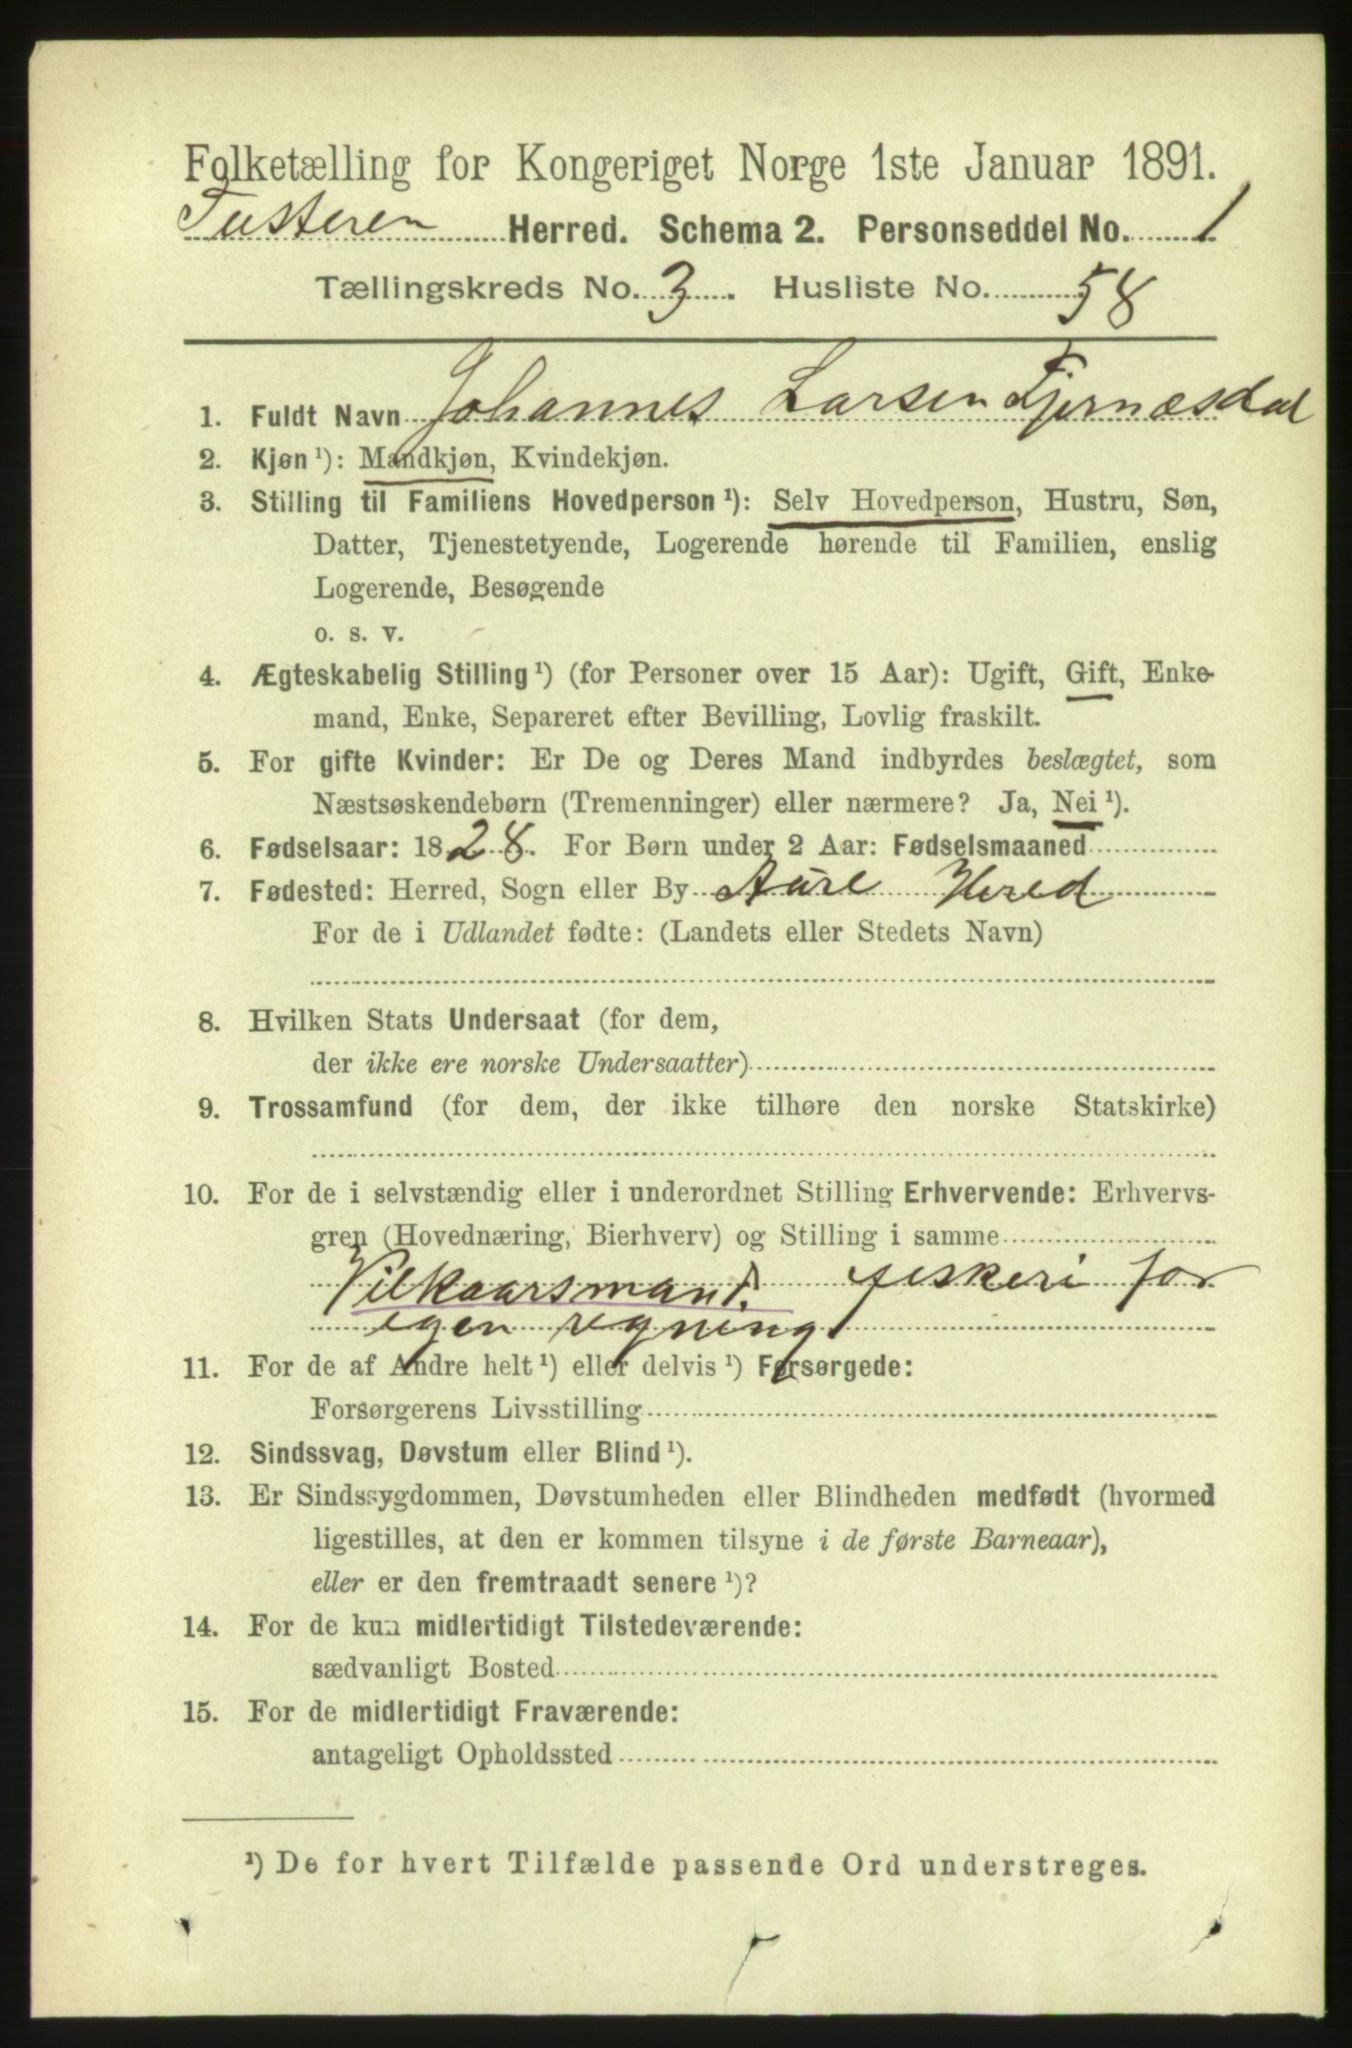 Folketælling for Kongeriget Norge 1ste Januar 1891.
Tusteren Herred. Schema 2. Personseddel No. 1
Tællingskreds No. 3. Husliste No. 58
1. Fuldt Navn Johannes Larsen Fjernæsdal
2. Kjøn ¹): Mandkjøn, Kvindekjøn.
3. Stilling til Familiens Hovedperson ¹): Selv Hovedperson, Hustru, Søn,
Datter, Tjenestetyende, Logerende hørende til Familien, enslig
Logerende, Besøgende
o. s. v.
4. Ægteskabelig Stilling ¹) (for Personer over 15 Aar): Ugift, Gift, Enke-
mand, Enke, Separeret efter Bevilling, Lovlig fraskilt.
5. For gifte Kvinder: Er De og Deres Mand indbyrdes beslægtet, som
Næstsøskendebørn (Tremenninger) eller nærmere? Ja, Nei ¹).
6. Fødselsaar: 1828. For Børn under 2 Aar: Fødselsmaaned
7. Fødested: Herred, Sogn eller By Aure Hered
For de i Udlandet fødte: (Landets eller Stedets Navn)
8. Hvilken Stats Undersaat (for dem,
der ikke ere norske Undersaatter)
9. Trossamfund (for dem, der ikke tilhøre den norske Statskirke)
10. For de i selvstændig eller i underordnet Stilling Erhvervende: Erhvervs-
gren (Hovednæring, Bierhverv) og Stilling i samme
Vilkaarsmand. fiskeri for
egen regning
11. For de af Andre helt ¹) eller delvis ¹) Forsørgede:
Forsørgerens Livsstilling
12. Sindssvag, Døvstum eller Blind ¹).
13. Er Sindssygdommen, Døvstumheden eller Blindheden medfødt (hvormed
ligestilles, at den er kommen tilsyne i de første Barneaar),
eller er den fremtraadt senere ¹)?
14. For de kun midlertidigt Tilstedeværende:
sædvanligt Bosted
15. For de midlertidigt Fraværende:
antageligt Opholdssted
¹) De for hvert Tilfælde passende Ord understreges.